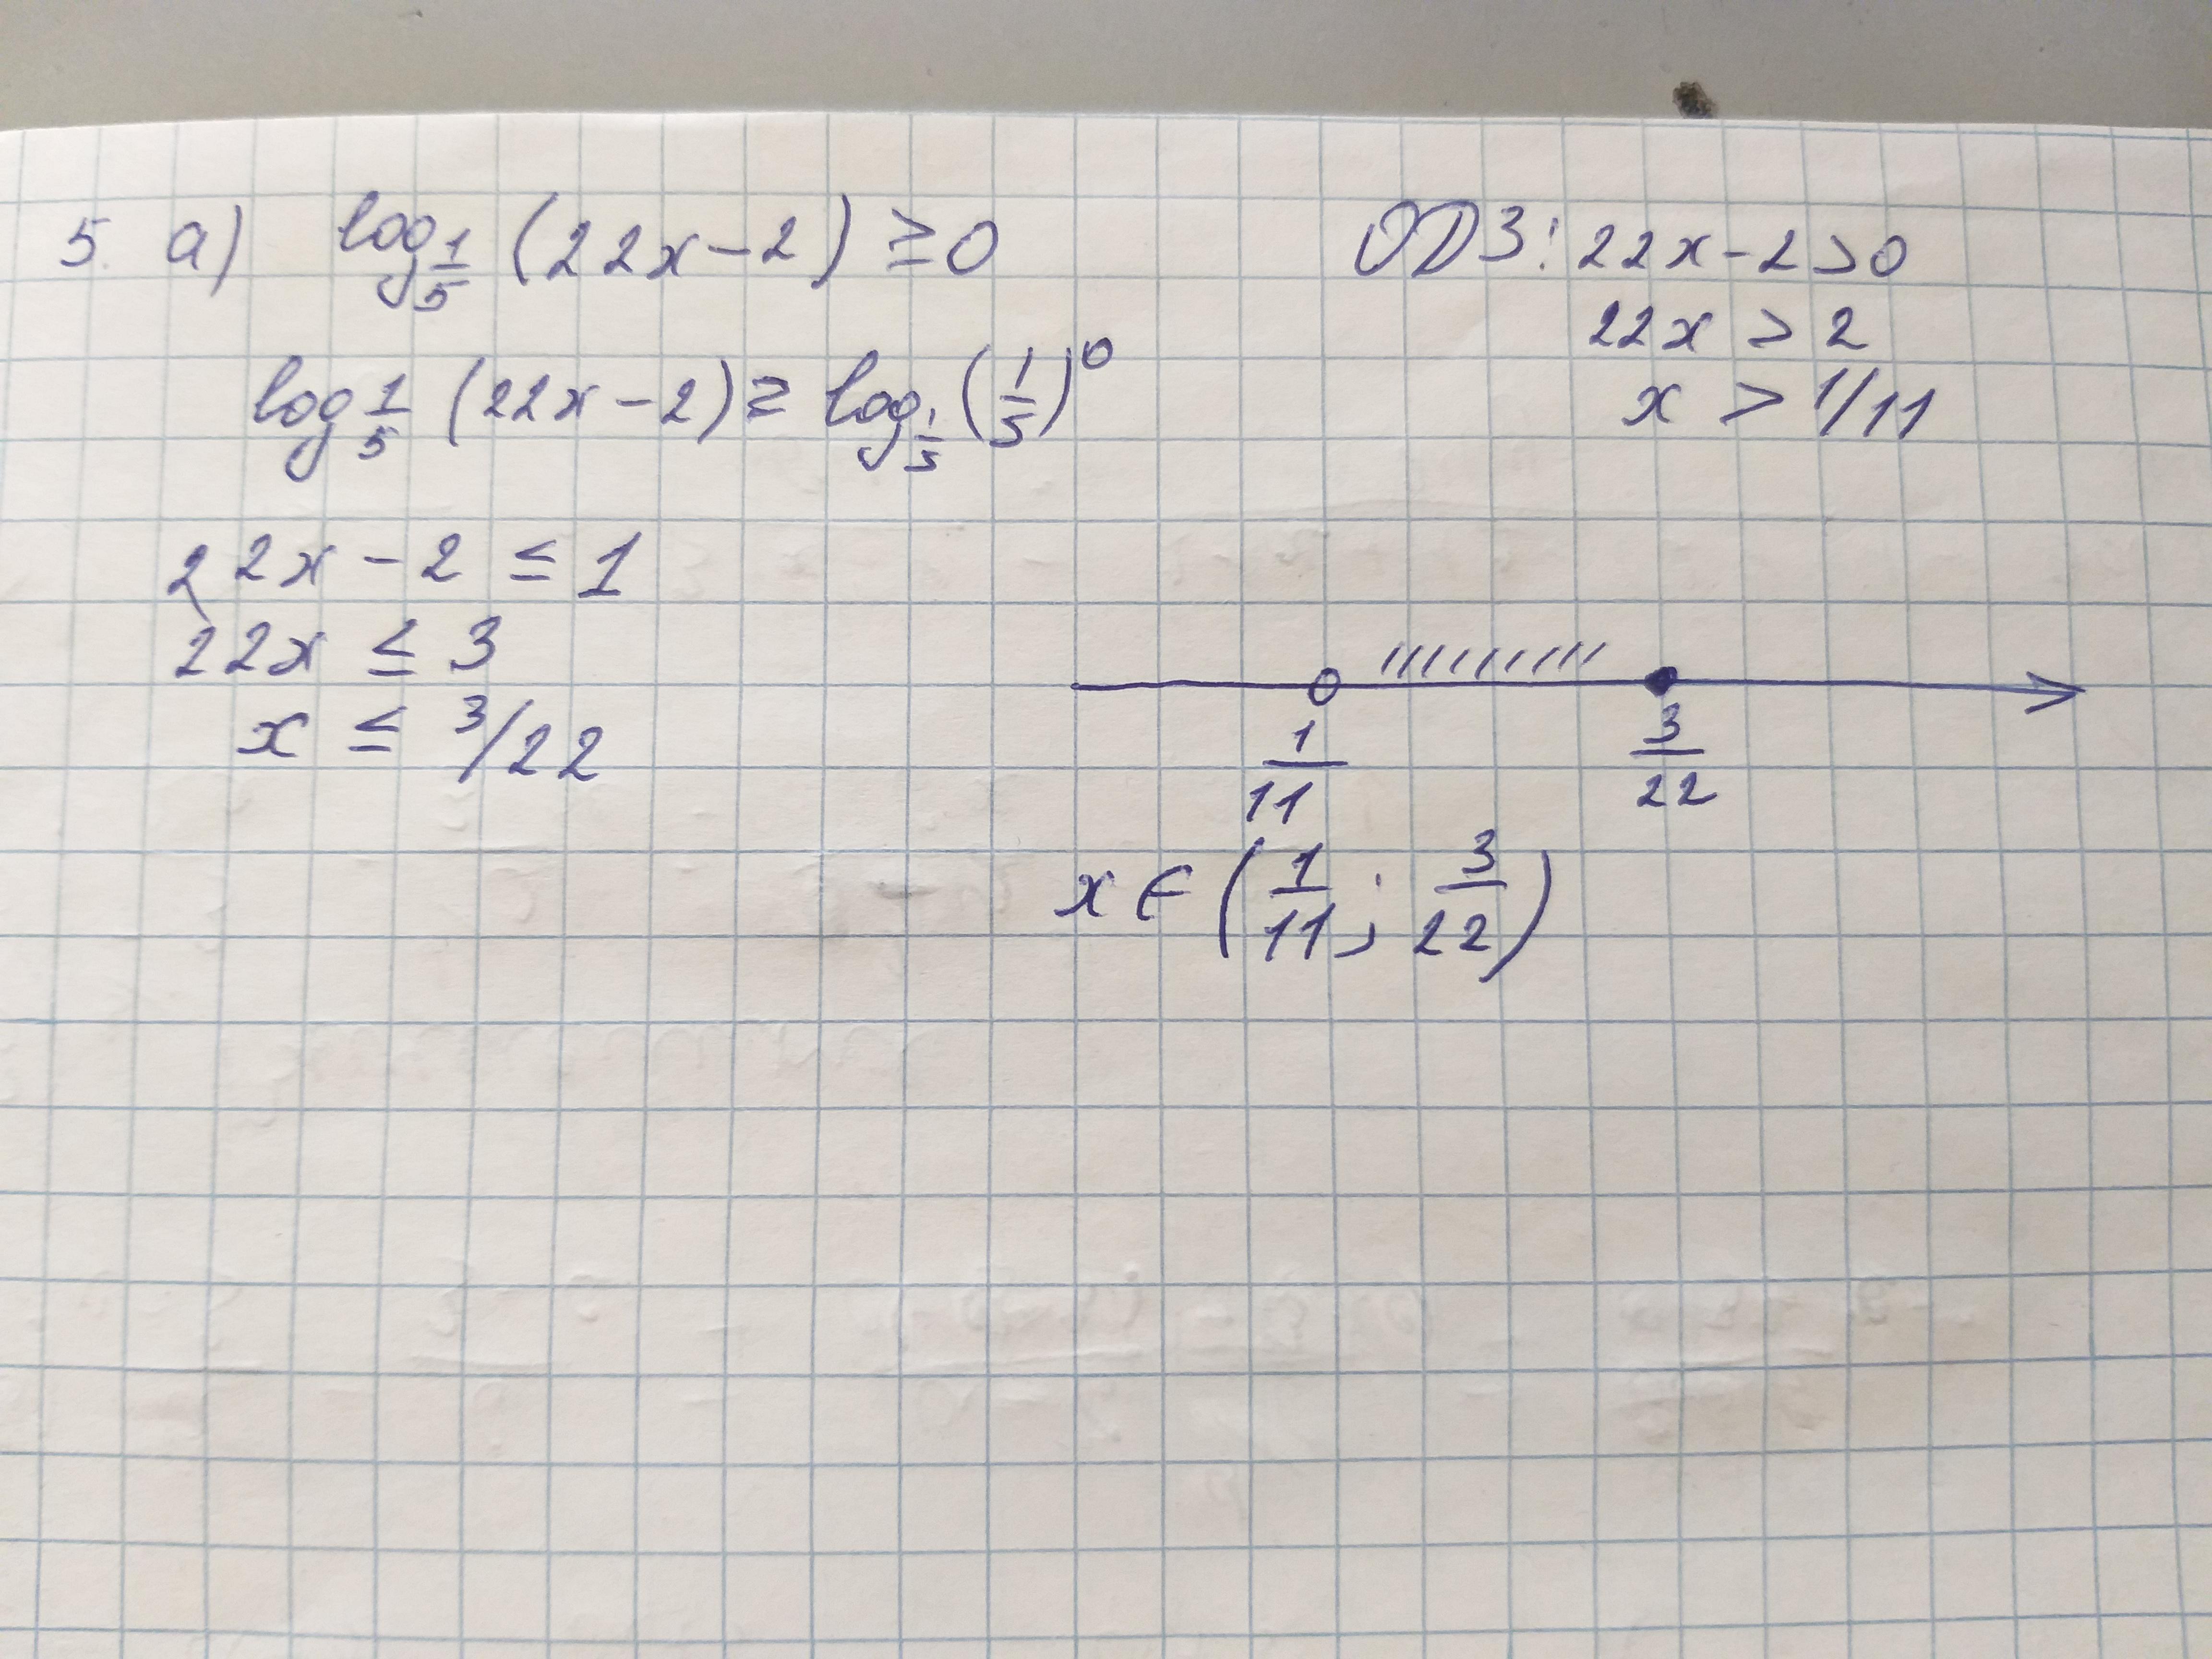 5. а) log_{1/5} (22x-2) ≥ 0
ОДЗ: 22x-2>0
22x > 2
x > 1/11
log_{1/5} (22x-2) ≥ log_{1/5} (1/5)^0
22x - 2 ≤ 1
22x ≤ 3
x ≤ 3/22
1/11 3/22
x ∈ (1/11; 3/22)